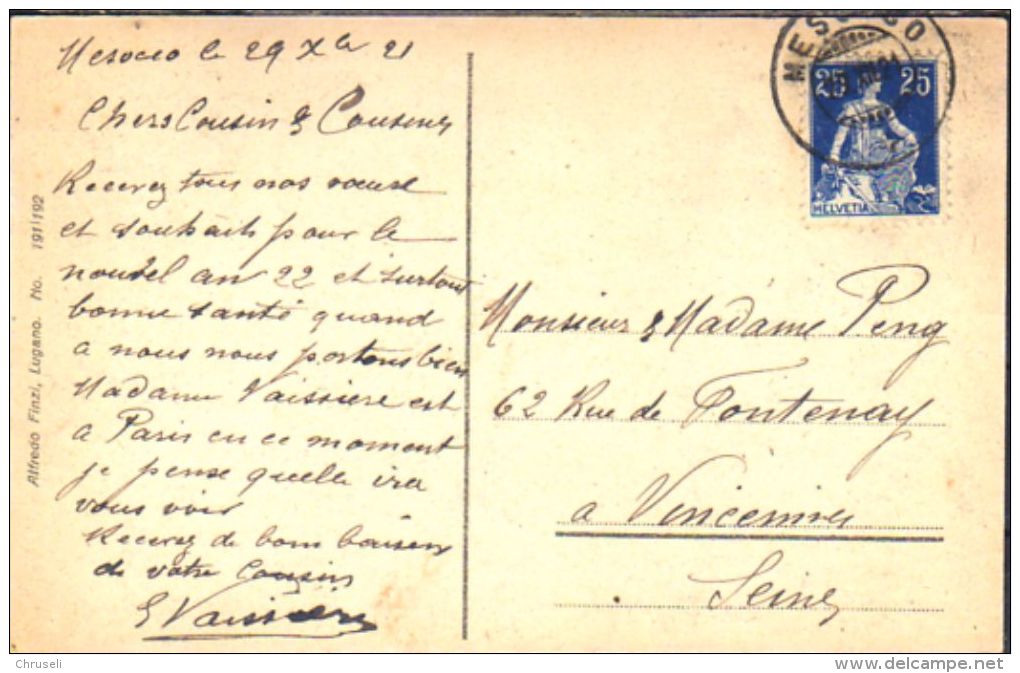 Mesocco le 29 Xbre 21
Chers Cousin & Cousines
Recevez tous nos vœux
et souhaits pour le
nouvel an 22 et surtout
bonne santé quand
a nous nous portons bien
Madame Vaissiere est
a Paris en ce moment
je pense quelle ira
vous voir
Recevez de bons baisers
de votre Cousin
E Vaissière
Alfredo Finzi, Lugano. No. 191/192
MESOCCO
25 25
HELVETIA
Monsieur & Madame Peng
62 Rue de Fontenay
a Vincennes
Seine
Chruseli
delcampe.net